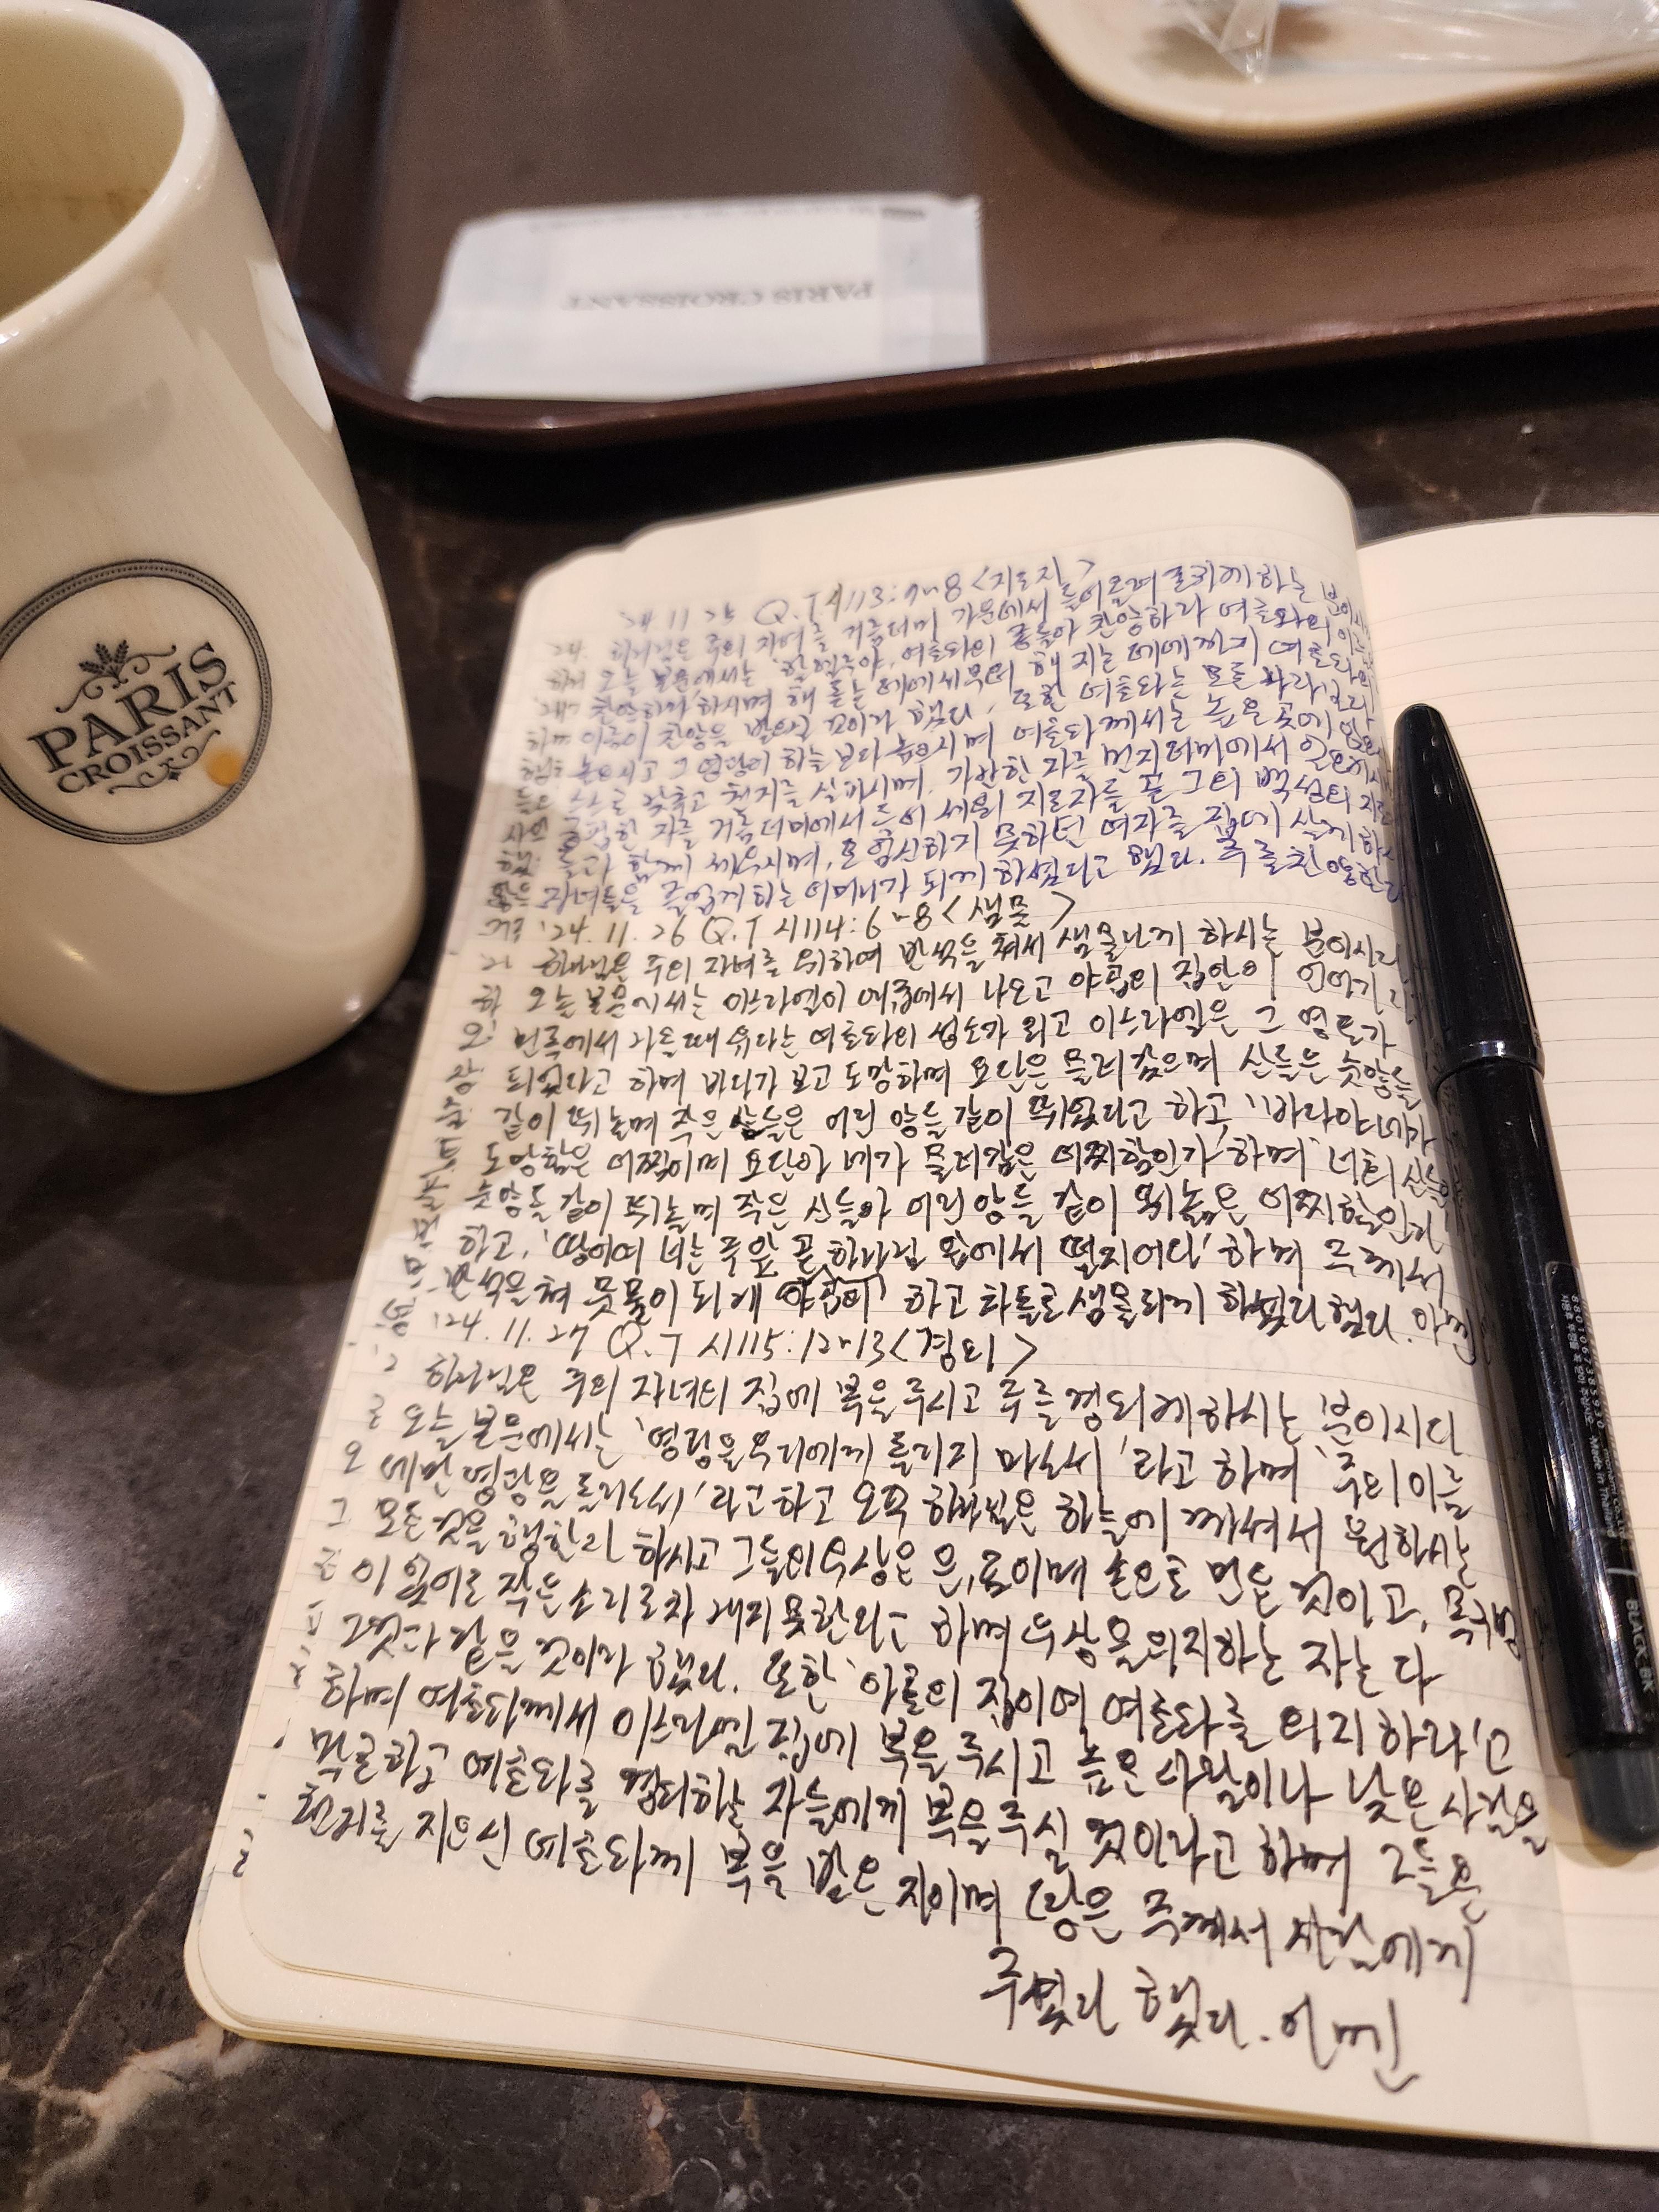 PARIS
CROISSANT
PARIS CROISSANT
'24. 11. 25 Q.T 시113:7~8 <지도자>
하나님은 주의 자녀를 거름더미 가운데서 들어올려 높게 하는 분이시
오늘 본문에서는 '할렐루야, 여호와의 종들아 찬양하라 여호와의 이름을
찬양하라' 하시며 해 돋는 데에서부터 해 지는 데에까지 여호와의
이름이 찬양을 받으실 것이라 했다. 또한 여호와는 모든 나라보다
높으시고 그 영광이 하늘보다 높으시며 여호와께서는 높은 곳에
스스로 낮추고 천지를 살피시며, 가난한 자를 먼지더미에서 일으키시
궁핍한 자를 거름더미에서 드어 세워 지도자들 곧 그의 백성의 지도
들과 함께 세우시며, 또 임신하지 못하던 여자를 집에 살게 하
자녀들을 즐겁게 하는 어머니가 되게 하셨다고 했다. 주를 찬양한다
'24. 11. 26 Q.T 시114:6~8 <샘물>
하나님은 주의 자녀를 위하여 반석을 쳐서 샘물나게 하시는 분이시다
오늘 본문에서는 이스라엘이 애굽에서 나오고 야곱의 집안이 언어가 다른
민족에서 나올 때 유다는 여호와의 성소가 되고 이스라엘은 그 영토가
되었다고 하며 바다가 보고 도망하며 요단은 물러갔으며 산들은 숫양들
같이 뛰놀며 작은 산들은 어린 양들 같이 뛰었다고 하고, '바다야 네가
도망함은 어찜이며 요단아 네가 물러감은 어찌함인가' 하며 '너희 산들아
숫양들 같이 뛰놀며 작은 산들아 어린양들 같이 뛰놂은 어찌함인가'
하고, '땅이여 너는 주앞 곧 하나님 앞에서 떨지어다' 하며 주께서
반석을 쳐 못물이 되게 하고 차돌로 샘물되게 하셨다 했다. 아멘
'24. 11. 27 Q.T 시115:12~13 <경외>
하나님은 주의 자녀의 집에 복을 주시고 주를 경외케하시는 분이시다
오늘 본문에서는 '영광을 우리에게 돌리지 마소서'라고 하며 '주의 이름
에만 영광을 돌리소서'라고 하고 오직 하나님은 하늘에 계셔서 원하시는
모든 것을 행한다 하시고 그들의 우상은 은, 금이며 손으로 만든 것이고, 목구멍
이 있어도 작은 소리조차 내지 못한다고 하며 우상을 의지하는 자는 다
그것과 같을 것이라 했다. 또한 '아론의 집이여 여호와를 의지하라'고
하며 여호와께서 이스라엘 집에 복을 주시고 높은 사람이나 낮은 사람을
막론하고 여호와를 경외하는 자들에게 복을 주실 것이라고 하며 그들은
천지를 지으신 여호와께 복을 받은 자이며 땅은 주께서 사람에게
주셨다 했다. 아멘